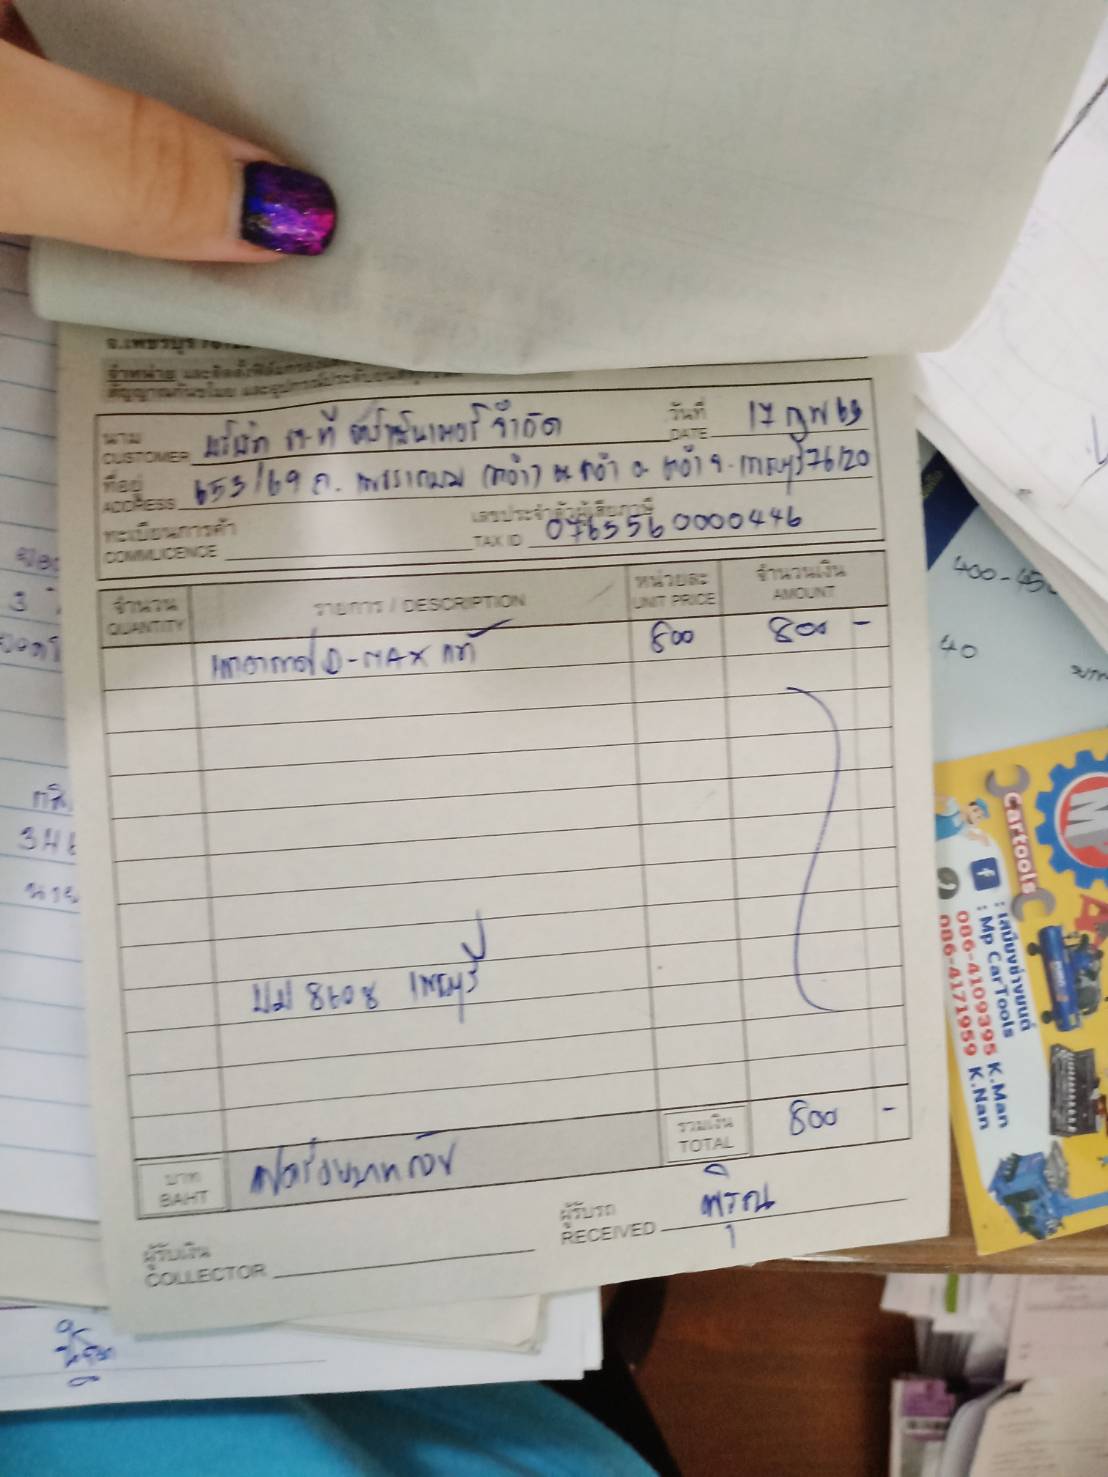 จ.เพชรบุรี
จำหน่าย และติดตั้งฟิล์มกรองแสง
สัญญาณกันขโมย และอุปกรณ์ประดับยนต์
นาม
CUSTOMER
บริษัท
จำกัด
วันที่
DATE
17 กพ 69
ที่อยู่
ADDRESS
653/69 ถ.
จ. เพชรบุรี 76120
ทะเบียนการค้า
COMM.LICENCE
เลขประจำตัวผู้เสียภาษี
TAX ID
0765560000446
จำนวน
QUANTITY
รายการ / DESCRIPTION
หน่วยละ
UNIT PRICE
จำนวนเงิน
AMOUNT
D-MAX แท้
800
800 -
8608 เพชรบุรี
บาท
BAHT
แปดร้อยบาทถ้วน
รวมเงิน
TOTAL
800 -
ผู้รับเงิน
COLLECTOR
ผู้รับรถ
RECEIVED
400-450
40
Cartools
: เสบียงช่างยนต์
: Mp CarTools
086-4109395 K.Man
086-4171959 K.Nan